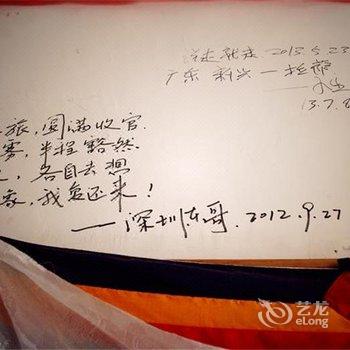 说走就走 2013.5.23
广东 新兴 — 拉萨
13.7.8
旅,圆满收官.
雾,半程豁然
,各自去想
象,我会还来!
——深圳东哥. 2012.9.27
艺龙
eLong